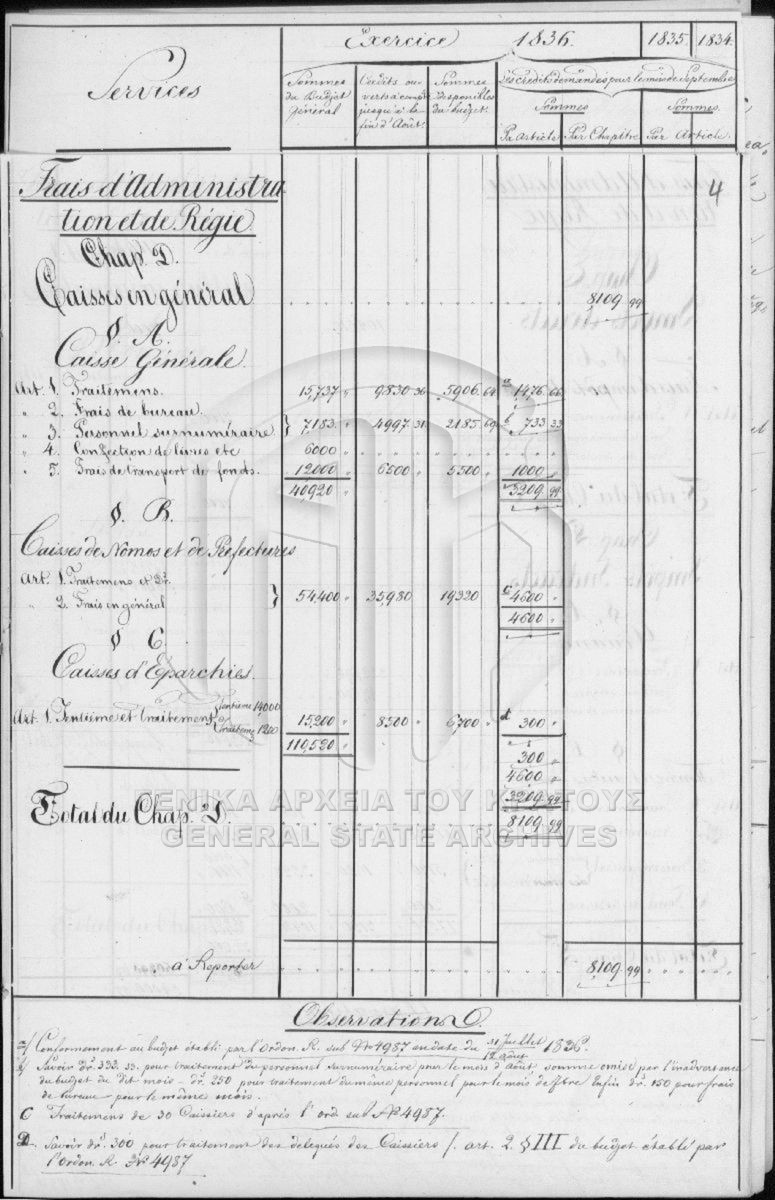 Services
Exercice 1836. 1835. 1834.
Sommes du Budjet Général
Crédits ouverts à compte jusqu'à la fin d'Août.
Sommes disponibles du budget.
Les crédits demandés pour le mois de Septembre
Sommes Sommes.
Par Article Par Chapitre Par Article.
Frais d'Administra
tion et de Régie. 4
Chap. D.
Caisses en général 8109 99
§. A.
Caisse Générale.
Art. 1. Traitemens. 15,737 " 9830 36 5906 64 a 1476 66
" 2. Frais de bureau.
" 3. Personnel surnuméraire. } 7,183 " 4997 31 2185 69 b 733 33
" 4. Confection de livres etc 6000 "
" 5. Frais de transport de fonds. 12000 " 6500 " 5500 " 1000 "
40920 " 3209 99
§. B.
Caisses de Nomos et de Préfectures
Art. 1. Traitemens et Dr.
" 2. Frais en général } 54,400 " 35,980 19320 c 4600 "
4600 "
§ C.
Caisses d'Éparchies.
Art. 1. Tentième et traitement { Tentième 14,000 / traitem. 1200 15,200 " 8500 " 6700 " d 300 "
110,520 " 300 "
4600 "
3209 99
Total du Chap. D. 8109 99
ΓΕΝΙΚΑ ΑΡΧΕΙΑ ΤΟΥ ΚΡΑΤΟΥΣ
GENERAL STATE ARCHIVES
à Reporter 8109 99
Observations
a/ Conformement au budjet établi par l'Ordon. R. sub No 4987 en date du 31 Juillet / 12 Août 1836.
b/ Savoir dr. 333. 33. pour traitement du personnel surnuméraire pour le mois d'Août somme omise par l'inadvertance
du budget du dit mois - dr. 250 pour traitement du même personnel pour le mois de 7bre Enfin dr. 150 pour frais
de bureau pour le même mois.
C Traitemens de 30 Caissiers d'après l'ord sub No 4987.
D. Savoir dr. 300 pour traitement des delegués des Caissiers /. art. 2. § III du budget établi par
l'Ordon. R. No 4987